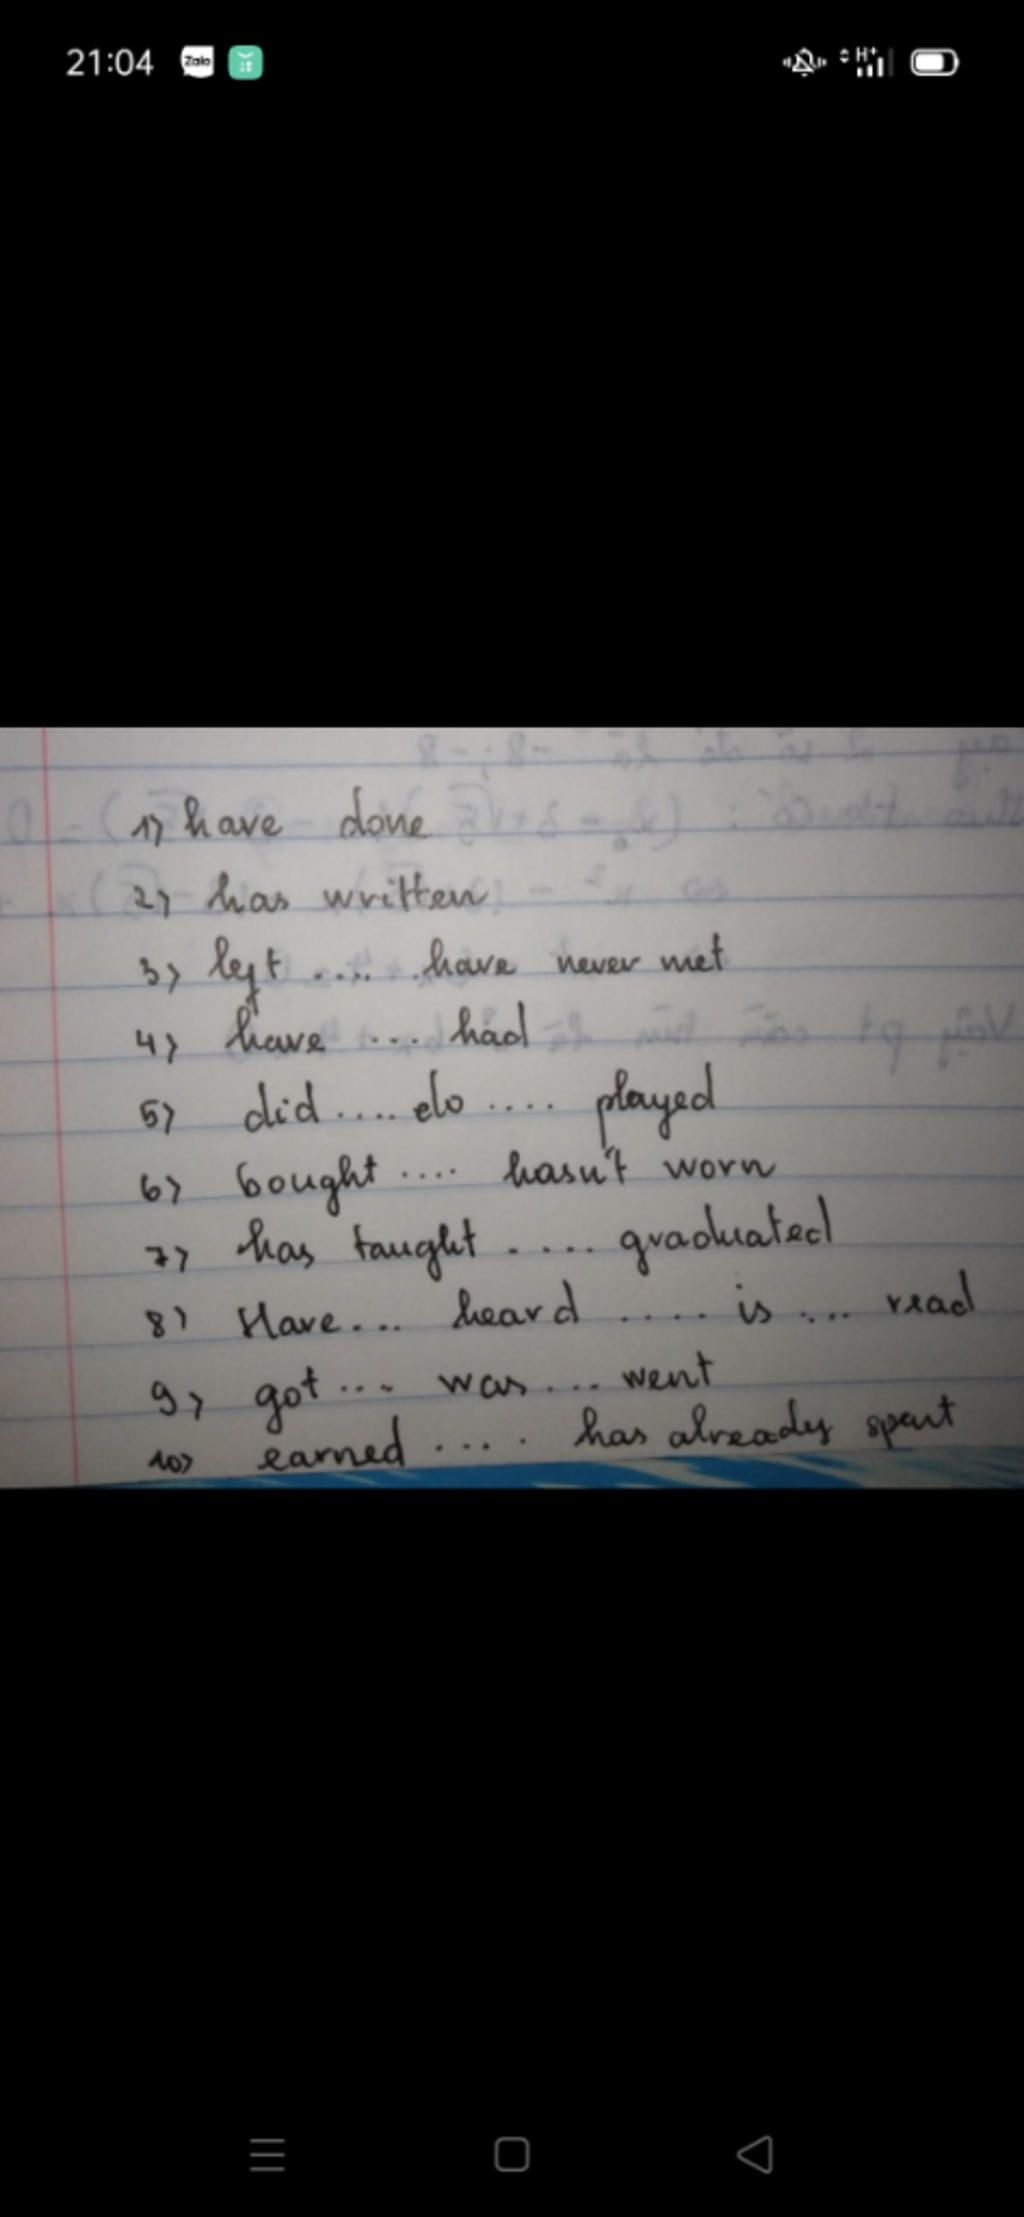 21:04 Zalo H+
1) have done
2) has written
3) left .... have never met
4) have ... had
5) did .... do .... played
6) bought .... hasn't worn
7) has taught ..... graduated
8) Have... heard ..... is .... read
9) got .... was ... went
10) earned ..... has already spent